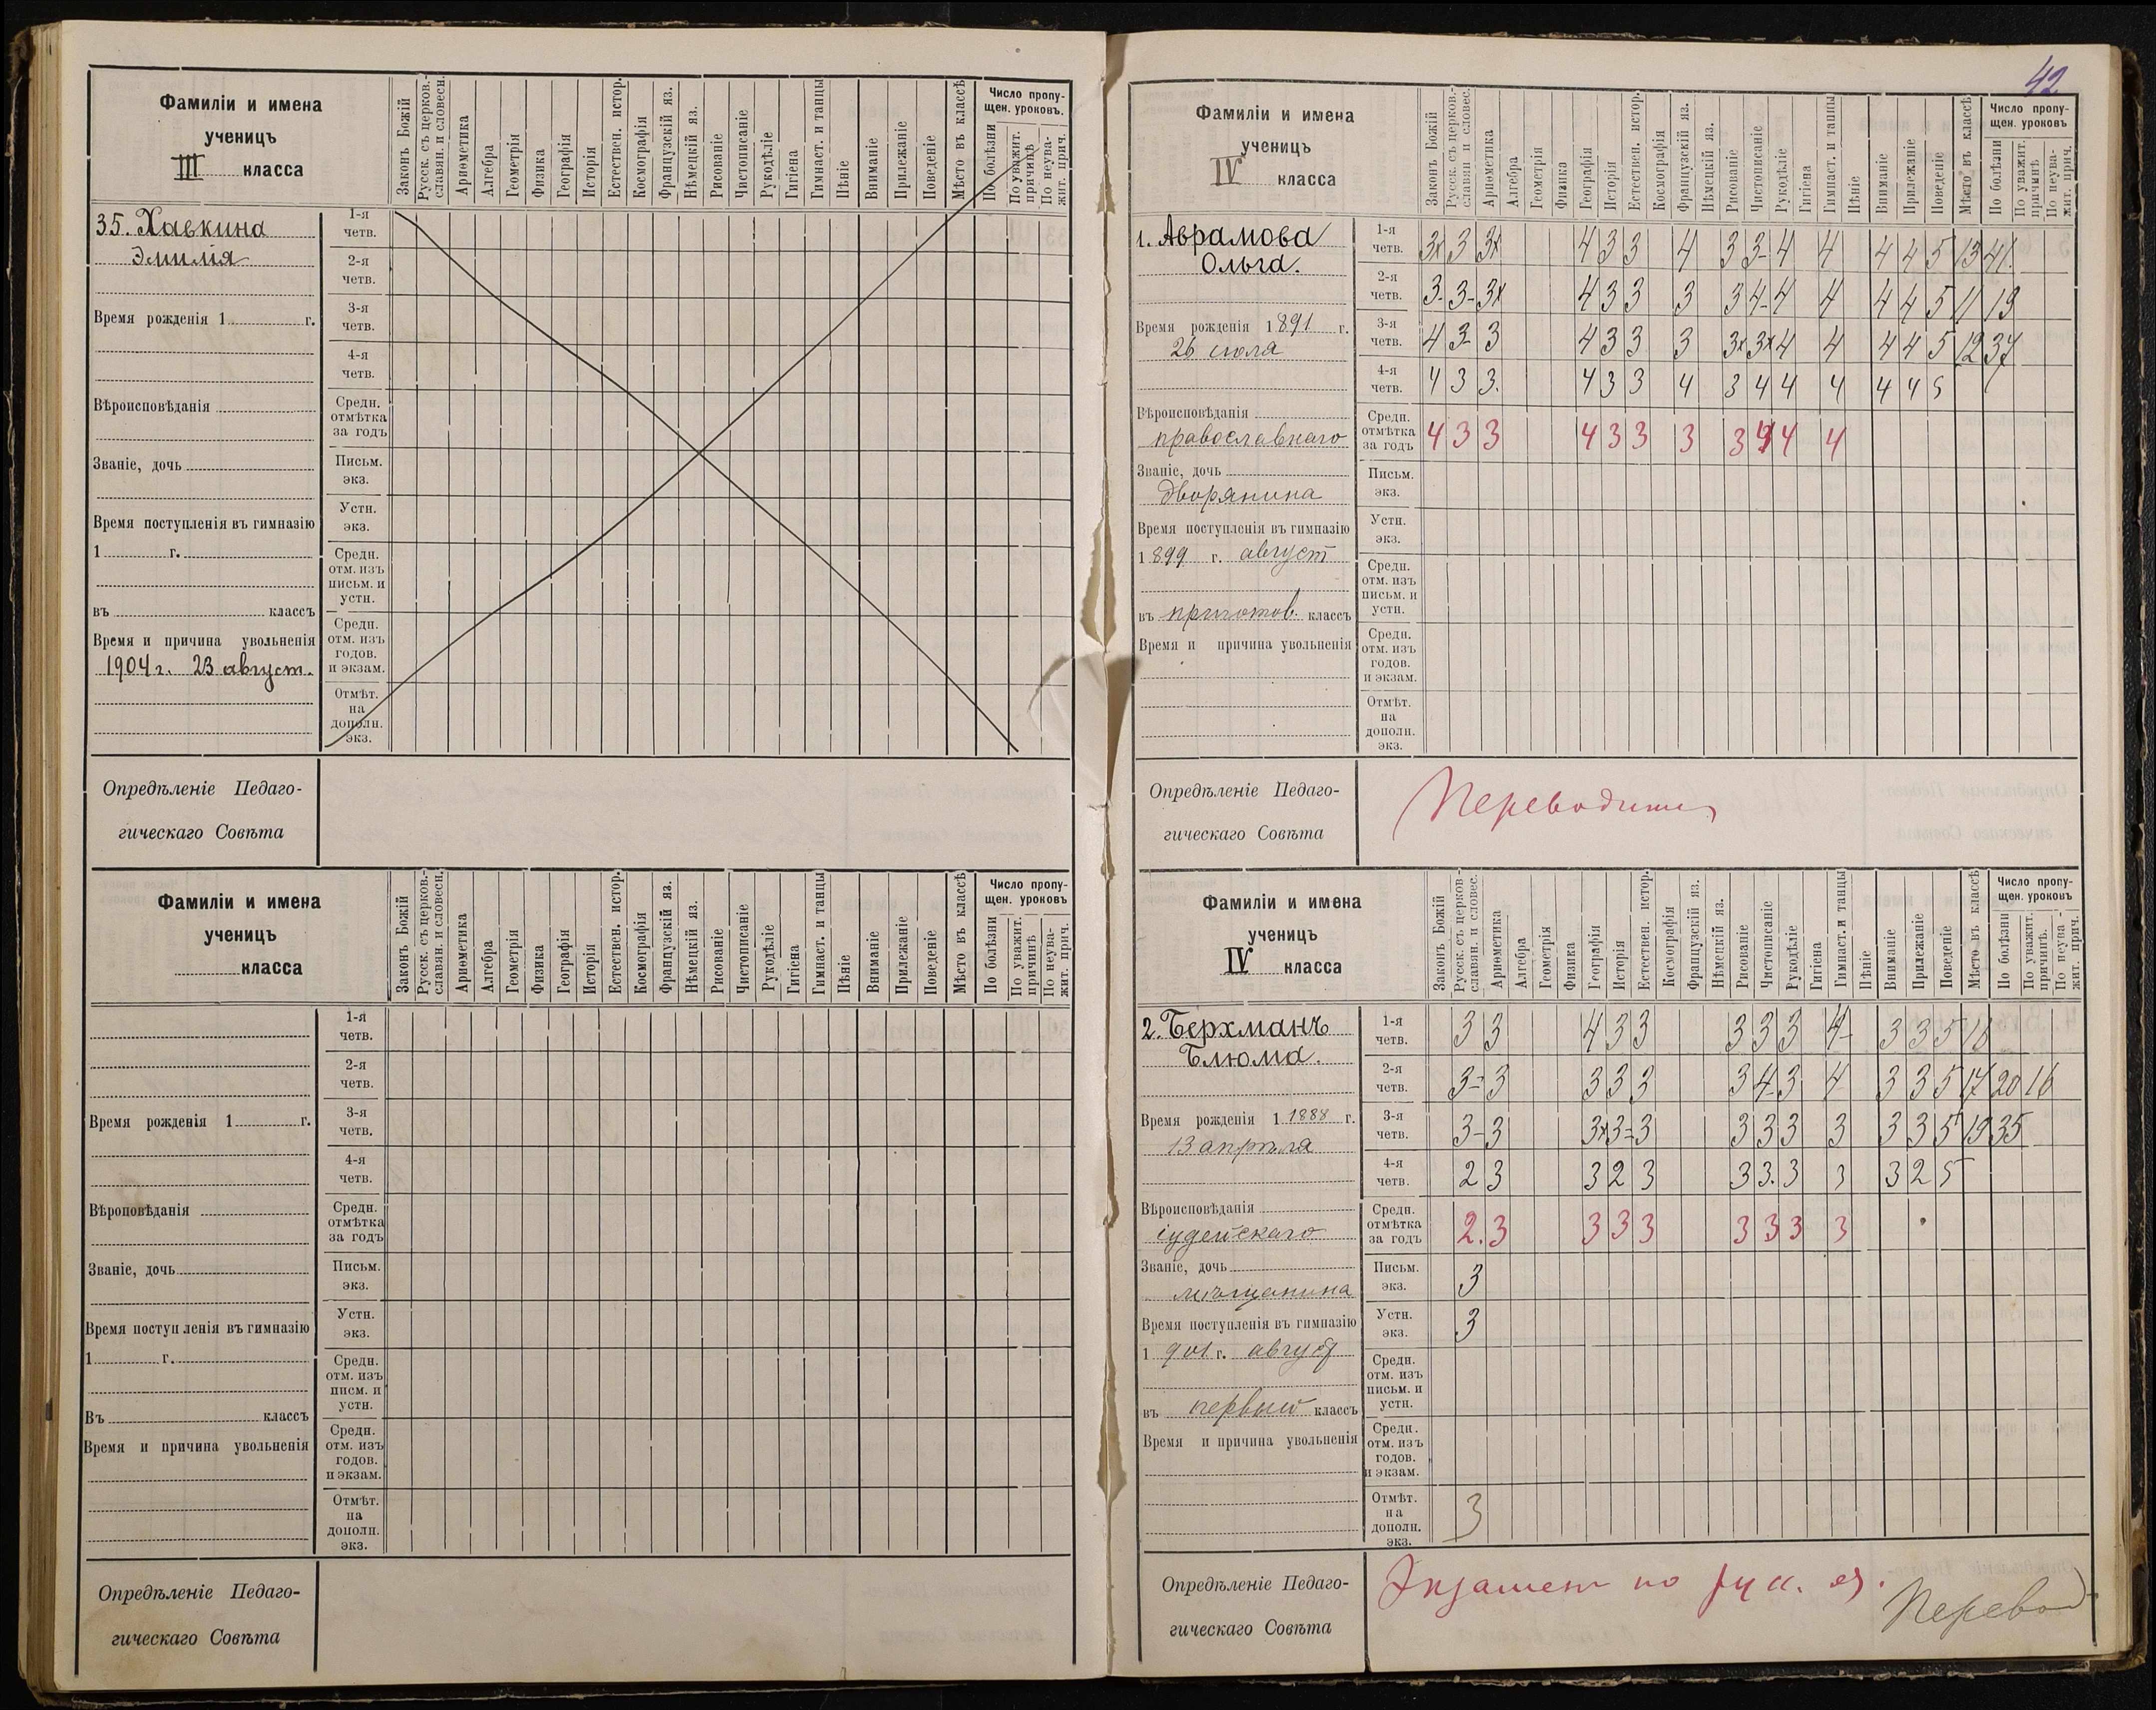 42
Фамиліи и имена
ученицъ
III класса
Законъ Божій
Русск. съ церков.-
славян. и словесн.
Ариөметика
Алгебра
Геометрія
Физика
Географія
Исторія
Естествен. истор.
Космографія
Французскій яз.
Нѣмецкій яз.
Рисованіе
Чистописаніе
Рукодѣліе
Гигіена
Гимнаст. и танцы
Пѣніе
Вниманіе
Прилежаніе
Поведеніе
Мѣсто въ классѣ
Число пропу-
щен. уроковъ.
По болѣзни
По уважит.
причинѣ
По неува-
жит. прич.
35. Хавкина
Эмилія
Время рожденія 1 г.
Вѣроисповѣданія
Званіе, дочь
Время поступленія въ гимназію
1 г.
въ классъ
Время и причина увольненія
1904 г. 23 август.
1-я
четв.
2-я
четв.
3-я
четв.
4-я
четв.
Средн.
отмѣтка
за годъ
Письм.
экз.
Устн.
экз.
Средн.
отм. изъ
письм. и
устн.
Средн.
отм. изъ
годов.
и экзам.
Отмѣт.
на
дополн.
экз.
Опредѣленіе Педаго-
гическаго Совѣта
Фамиліи и имена
ученицъ
класса
Законъ Божій
Русск. съ церков.-
славян. и словесн.
Ариөметика
Алгебра
Геометрія
Физика
Географія
Исторія
Естествен. истор.
Космографія
Французскій яз.
Нѣмецкій яз.
Рисованіе
Чистописаніе
Рукодѣліе
Гигіена
Гимнаст. и танцы
Пѣніе
Вниманіе
Прилежаніе
Поведеніе
Мѣсто въ классѣ
Число пропу-
щен. уроковъ
По болѣзни
По уважит.
причинѣ
По неува-
жит. прич.
Время рожденія 1 г.
Вѣроповѣданія
Званіе, дочь
Время поступленія въ гимназію
1 г.
Въ классъ
Время и причина увольненія
1-я
четв.
2-я
четв.
3-я
четв.
4-я
четв.
Средн.
отмѣтка
за годъ
Письм.
экз.
Устн.
экз.
Средн.
отм. изъ
писм. и
устн.
Средн.
отм. изъ
годов.
и экзам.
Отмѣт.
на
дополн.
экз.
Опредѣленіе Педаго-
гическаго Совѣта
Фамиліи и имена
ученицъ
IV класса
Законъ Божій
Русск. съ церков.-
славян. и словес.
Ариөметика
Алгебра
Геометрія
Физика
Географія
Исторія
Естествен. истор.
Космографія
Французскій яз.
Нѣмецкій яз.
Рисованіе
Чистописаніе
Рукодѣліе
Гигіена
Гимнаст. и танцы
Пѣніе
Вниманіе
Прилежаніе
Поведеніе
Мѣсто въ классѣ
Число пропу-
щен. уроковъ
По болѣзни
По уважит.
причинѣ
По неува-
жит. прич.
1. Аврамова
Ольга.
Время рожденія 1891 г.
26 июля
Вѣроисповѣданія
православнаго
Званіе, дочь
дворянина
Время поступленія въ гимназію
1899 г. август
въ приготов. классъ
Время и причина увольненія
1-я
четв. 3x 3 3x 4 3 3 4 3 3- 4 4 4 4 5 13 41.
2-я
четв. 3- 3- 3x 4 3 3 3 3 4- 4 4 4 4 5 11 19
3-я
четв. 4 3- 3 4 3 3 3 3x 3x 4 4 4 4 5 12 37
4-я
четв. 4 3 3. 4 3 3 4 3 4 4 4 4 4 5
Средн.
отмѣтка
за годъ 4 3 3 4 3 3 3 3 4 4 4
Письм.
экз.
Устн.
экз.
Средн.
отм. изъ
письм. и
устн.
Средн.
отм. изъ
годов.
и экзам.
Отмѣт.
на
дополн.
экз.
Опредѣленіе Педаго-
гическаго Совѣта
Переводится
Фамиліи и имена
ученицъ
IV класса
Законъ Божій
Русск. съ церков-
славян. и словес.
Ариөметика
Алгебра
Геометрія
Физика
Географія
Исторія
Естествен. истор.
Космографія
Французскій яз.
Нѣмецкій яз.
Рисованіе
Чистописаніе
Рукодѣліе
Гигіена
Гимнаст. и танцы
Пѣніе
Вниманіе
Прилежаніе
Поведеніе
Мѣсто въ классѣ
Число пропу-
щен. уроковъ
По болѣзни
По уважит.
причинѣ.
По неува-
жит. прич.
2. Берхманъ
Блюма.
Время рожденія 1 1888 г.
13 апрѣля
Вѣроисповѣданія
іудейскаго
Званіе, дочь
мѣщанина
Время поступленія въ гимназію
1 901 г. август
въ первый классъ
Время и причина увольненія
1-я
четв. 3 3 4 3 3 3 3 3 4- 3 3 5 18
2-я
четв. 3- 3 3 3 3 3 4- 3 4 3 3 5 17 20 16
3-я
четв. 3- 3 3x 3- 3 3 3 3 3 3 3 5 19 35
4-я
четв. 2 3 3 2 3 3 3. 3 3 3 2 5
Средн.
отмѣтка
за годъ 2. 3 3 3 3 3 3 3 3
Письм.
экз. 3
Устн.
экз. 3
Средн.
отм. изъ
письм. и
устн.
Средн.
отм. изъ
годов.
и экзам.
Отмѣт.
на
дополн.
экз. 3
Опредѣленіе Педаго-
гическаго Совѣта
Экзамен по русс. яз.
Перевод